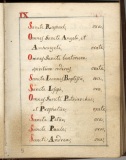 IX
Sancte Raphael, ora,
Omnes Sancti Angeli, et
Archangeli, orate,
Omnes Sancti beatorum
spirituum ordines, orate,
Sancte Joannes Baptista, ora,
Sancte Joseph, ora,
Omnes Sancti Patriarchæ,
et Prophetæ, orate,
Sancte Petre, ora,
Sancte Paule, ora,
Sancte Andrea, ora,